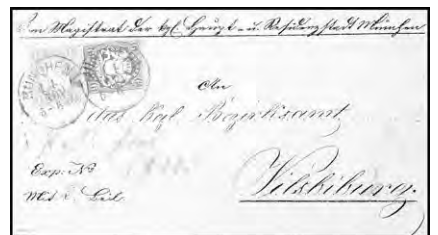 Vom Magistrat der kgl. Haupt- u. Residenzstadt München
MÜNCHEN
An
das Kgl. Bezirksamt
Exp: No
Mit 2 Beil.
Vilsbiburg.